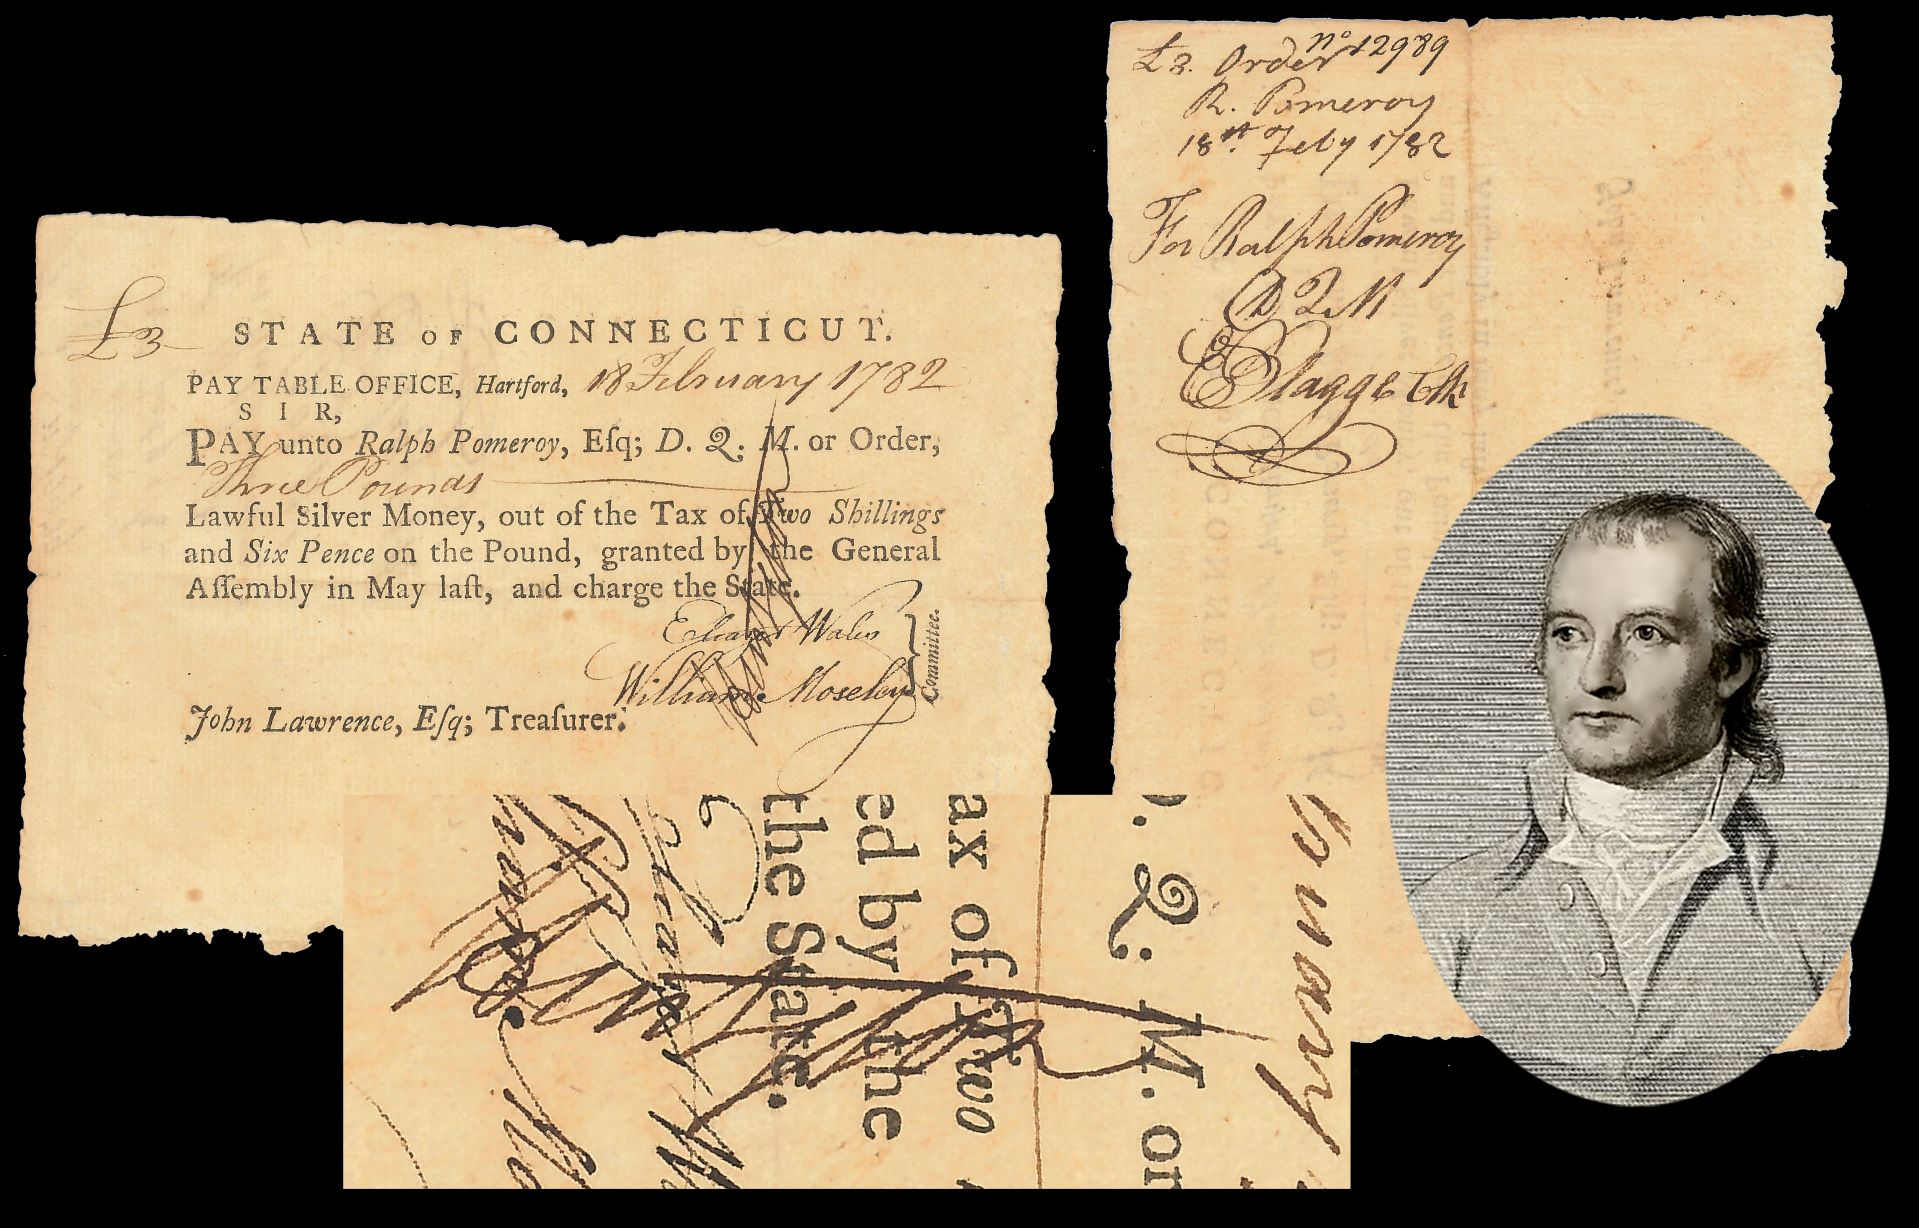 £3
STATE OF CONNECTICUT.
PAY TABLE OFFICE, Hartford, 18 February 1782
SIR,
PAY unto Ralph Pomeroy, Eſq; D. Q. M. or Order,
Three Pounds
Lawful Silver Money, out of the Tax of Two Shillings
and Six Pence on the Pound, granted by the General
Aſſembly in May laſt, and charge the State.
Eleazer Wales
William Moseley
Committee.
John Lawrence, Eſq; Treaſurer.
£3. Order no 12989
R. Pomeroy
18th Feby 1782
For Ralph Pomeroy
D Q M
E Flagge Clk
D. Q. M. or
ax of Two
ed by the
the State.